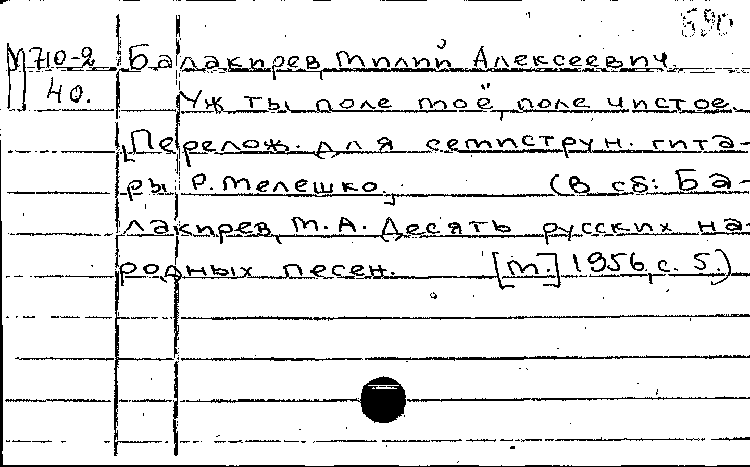 590
М710-2 Балакирев, Милий Алексеевич.
40. Уж ты поле моё, поле чистое.
[Перелож. для семиструн. гита-
ры Р. Мелешко.] (В сб: Ба-
лакирев, М. А. Десять русских на-
родных песен. [М.] 1956, с. 5.)